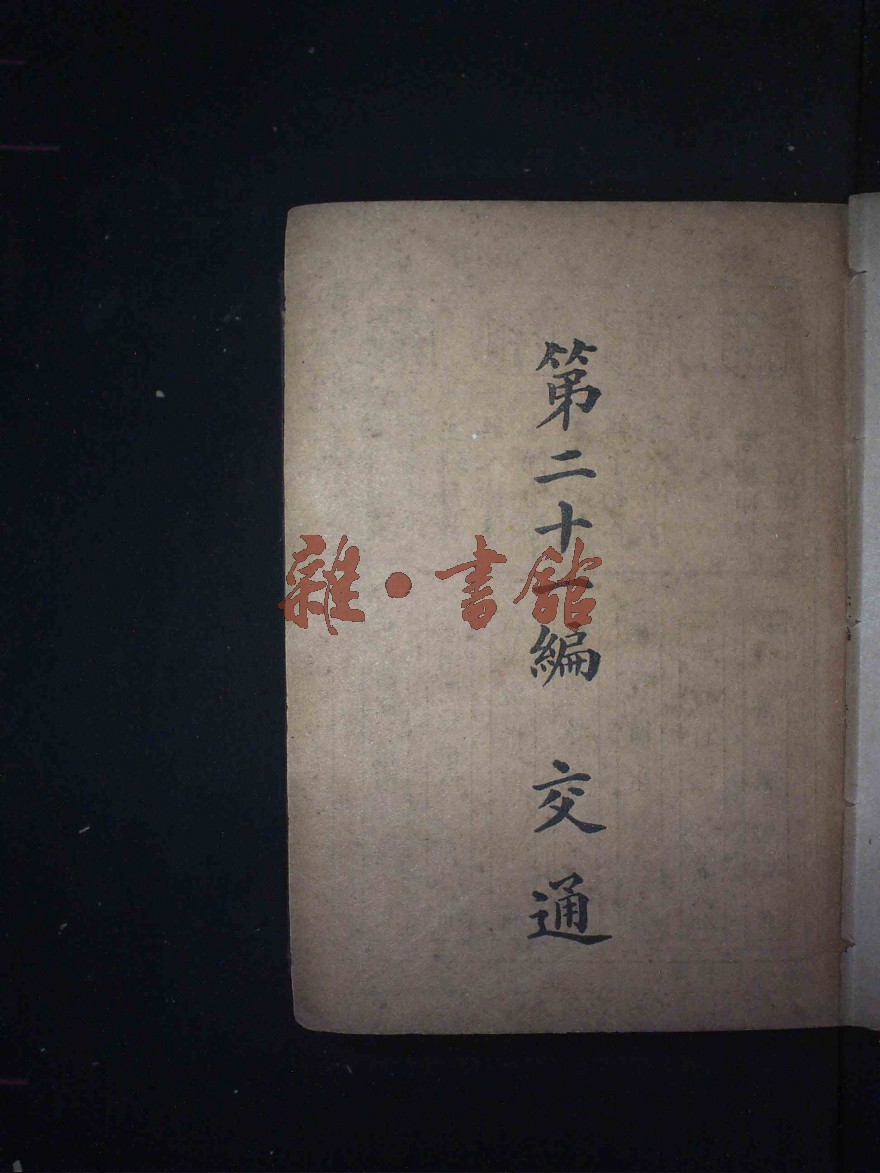 第二十一編 交通
雜·書館